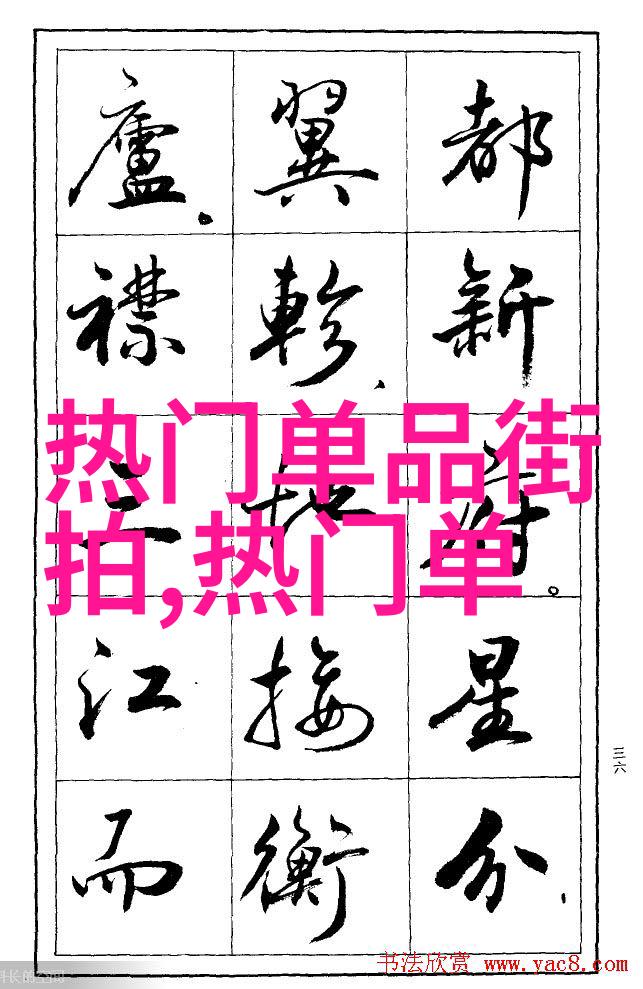 都新府。星分、
翼軫、地接衡
廬。襟三江而
热门单品街
拍,热门单
三六
书法欣赏 www.yac8.com
长的空间